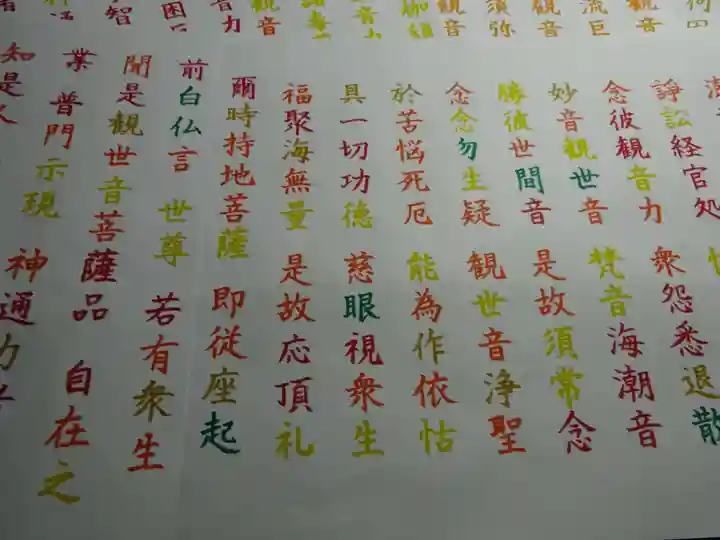 観音
流巨
観音
須弥
観音
観音
音力
諍訟経官処
念彼観音力 衆怨悉退散
妙音観世音 梵音海潮音
勝彼世間音 是故須常念
念念勿生疑 観世音浄聖
於苦悩死厄 能為作依怙
具一切功徳 慈眼視衆生
福聚海無量 是故応頂礼
爾時持地菩薩 即従座起
前白仏言 世尊 若有衆生
聞是観世音菩薩品 自在之
業 普門示現 神通力者
知是人